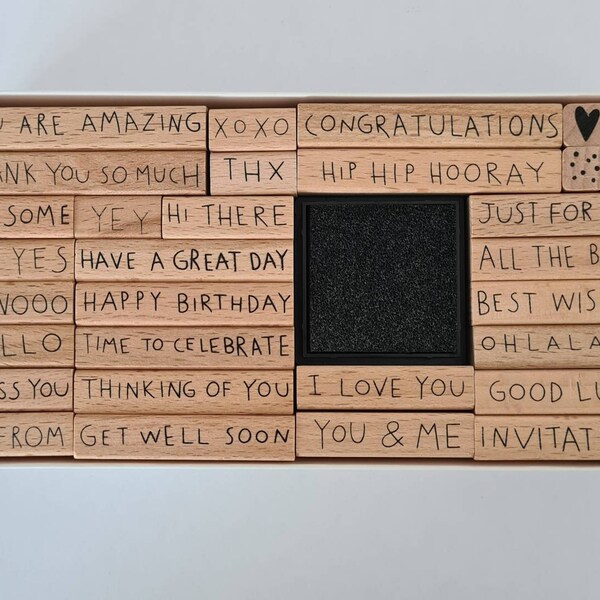 ARE AMAZING
XOXO
CONGRATULATIONS
YOU SO MUCH
THX
HIP HIP HOORAY
SOME
YEY
HI THERE
JUST FOR
YES
HAVE A GREAT DAY
ALL THE B
WOOO
HAPPY BIRTHDAY
BEST WIS
LLO
TIME TO CELEBRATE
OHLALA
SS YOU
THINKING OF YOU
I LOVE YOU
GOOD LU
FROM
GET WELL SOON
YOU & ME
INVITAT